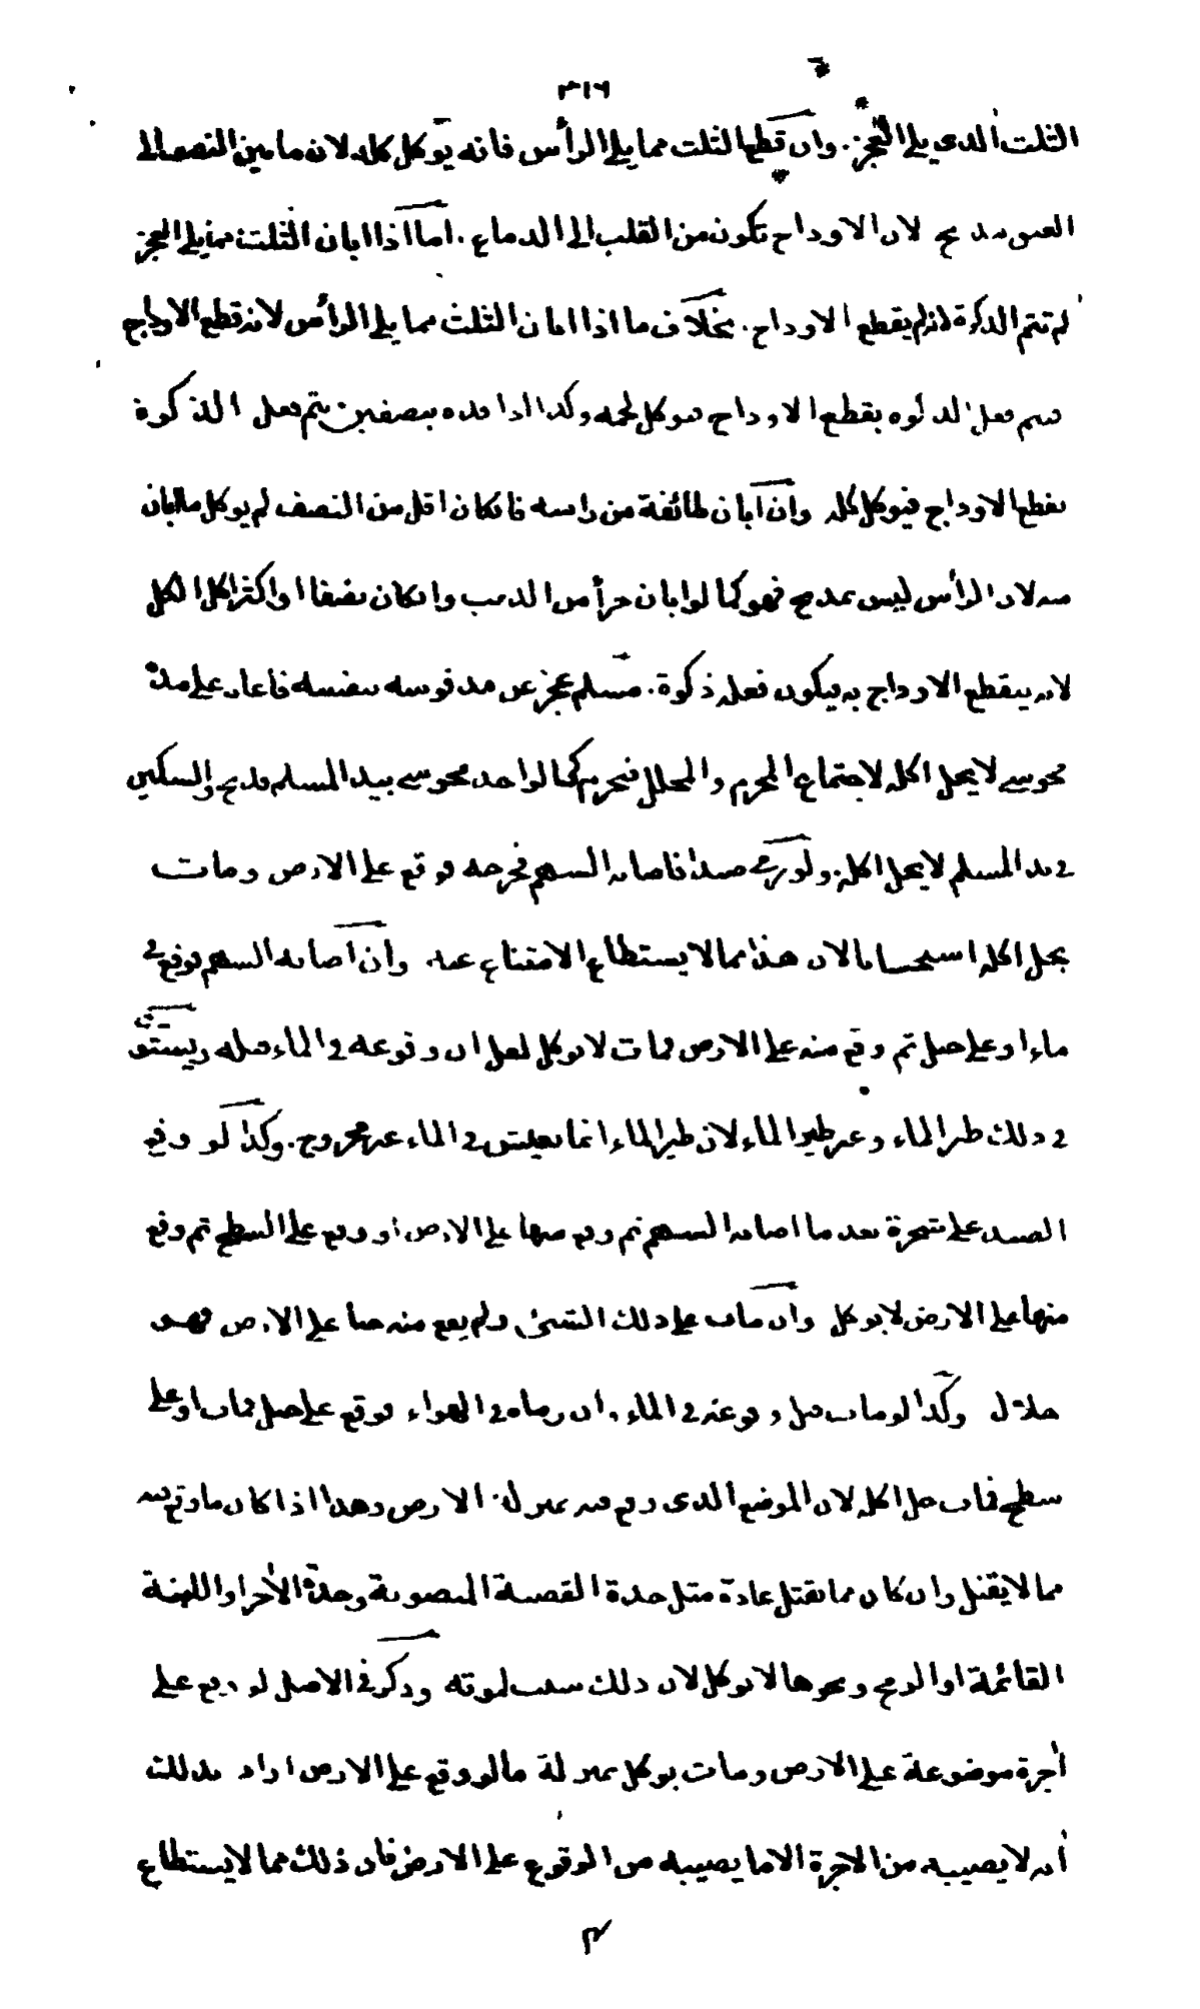 ٣١٦
الثلث الذي يلي العجز. وان قطع الثلث مما يلي الرأس فانه يؤكل كله لان ما بين النصف الى
العنق مذبح لان الاوداج تكون من القلب الى الدماغ. اما اذا ابان الثلث مما يلي العجز
لم تتم الذكوة لانه لم يقطع الاوداج. بخلاف ما اذا ابان الثلث مما يلي الرأس لانه قطع الاوداج
فيتم فعل الذكوة بقطع الاوداج فيوكل لحمه وكذا اذا قده بنصفين يتم فعل الذكوة
بقطع الاوداج فيوكل كله وان ابان طائفة من راسه فان كان اقل من النصف لم يوكل ما ابان
منه لان الرأس ليس بمذبح فهو كما لو ابان جزأ من الذنب وان كان نصفا او اكثر اكل الكل
لانه يتقطع الاوداج به فيكون فعله ذكوة. مسلم عجز عن مد قوسه بنفسه فاعانه على مده
مجوسي لا يحل اكله لاجتماع المحرم والمحلل فيحرم كما لو اخذ مجوسي بيد المسلم فذبح والسكين
في يد المسلم لا يحل اكله. ولو رمى صيدا فاصابه السهم فجرحه فوقع على الارض ومات
يحل اكله استحسانا لان هذا مما لا يستطاع الامتناع عنه. وان اصابه السهم فوقع في
ماء او على جبل ثم وقع منه على الارض فمات لا يوكل لعل ان وقوعه في الماء قتله ويستوي
في ذلك طير الماء وغير طير الماء لان طير الماء انما يعيش في الماء غير مجروح. وكذا لو وقع
الصيد على شجرة بعد ما اصابه السهم ثم وقع منها على الارض او وقع على السطح ثم وقع
منها على الارض لا يوكل وان مات على ذلك الشئ ولم يقع منه حيا على الارض فهو
حلال وكذا لو مات قبل وقوعه في الماء. ان رماه في الهواء فوقع على جبل فمات او على
سطح فمات حل اكله لان الموضع الذي وقع فيه بمنزلة الارض وهذا اذا كان ما وقع فيه
مما لا يقتل وان كان مما يقتل عادة مثل حدة القصبة المنصوبة وحدة الآجر او اللبنة
القائمة او الرمح ونحوها لا يوكل لان ذلك سبب لموته وذكر في الاصل لو وقع على
آجرة موضوعة على الارض ومات يوكل بمنزلة ما لو وقع على الارض اراد بذلك
انه لا يصيبه من الآجرة الا ما يصيبه من الوقوع على الارض فان ذلك مما لا يستطاع